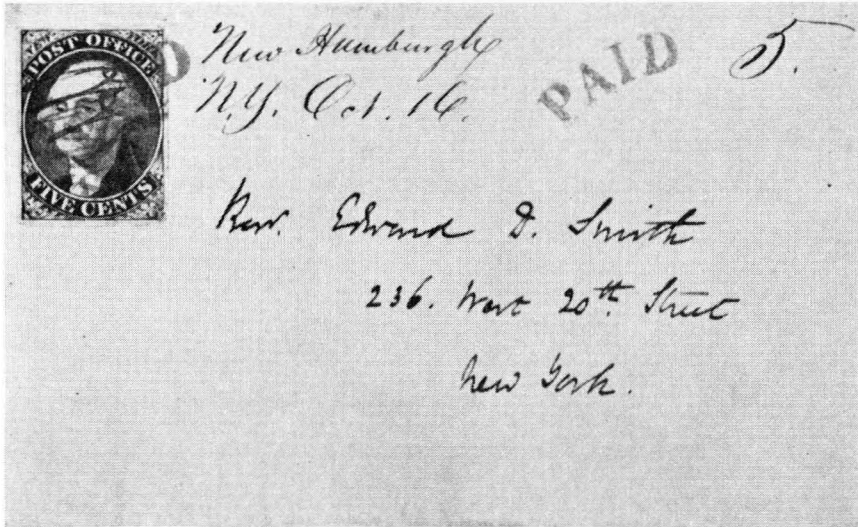 POST OFFICE
FIVE CENTS
New Hamburgh
N.Y. Oct. 16.
PAID
5.
Rev. Edward D. Smith
236. West 20th Street
New York.